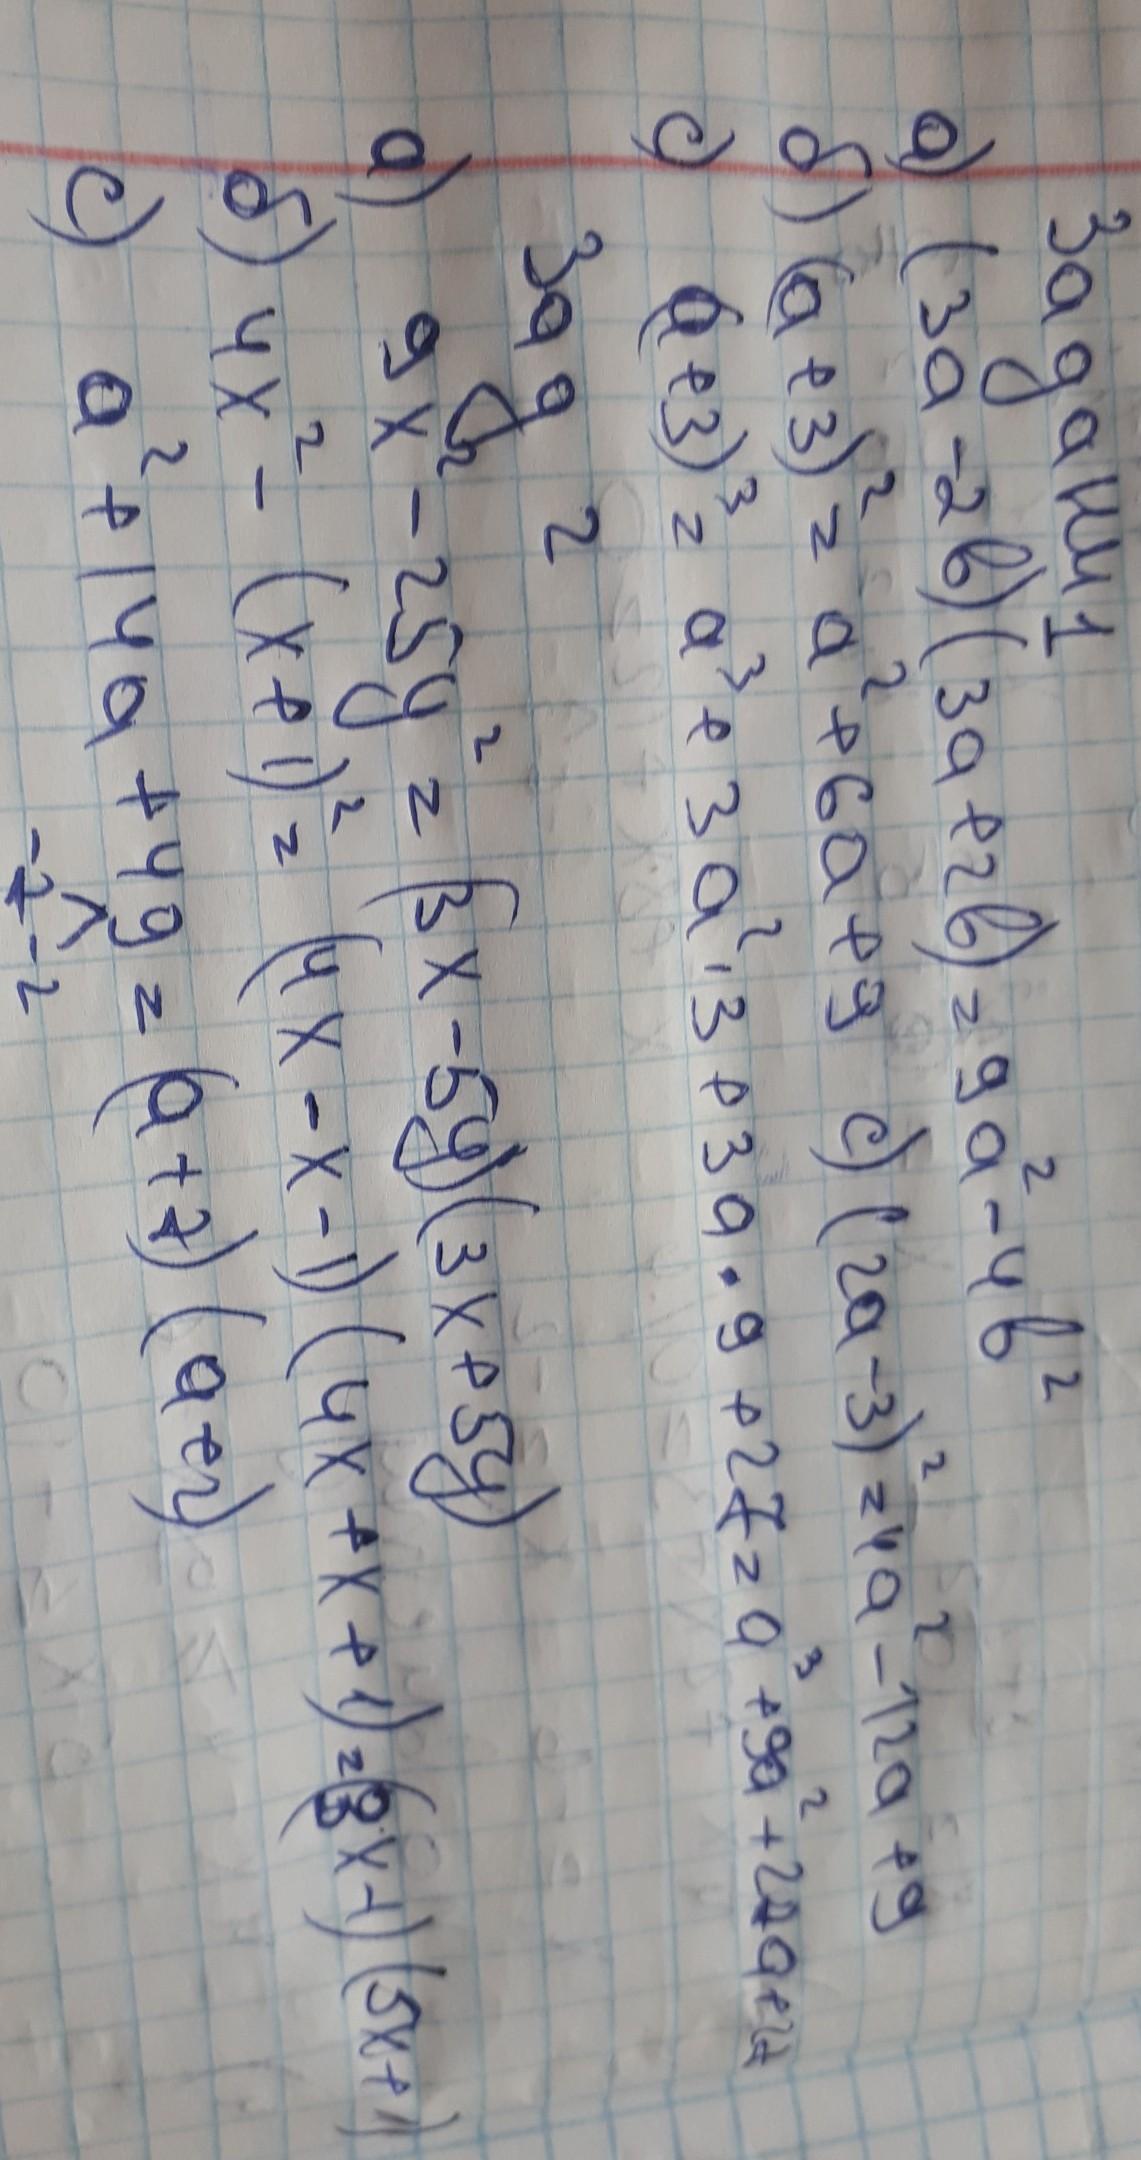 Задачи 1
а) (3a-2b)(3a+2b)=9a²-4b²
б) (a+3)²=a²+6a+9 с) (2a-3)²=4a²-12a+9
с) (a+3)³=a³+3a²·3+3a·9+27=a³+9a²+27a+27
Зад 2
а) 9x²-25y²=(3x-5y)(3x+5y)
б) 4x²-(x+1)²=(4x-x-1)(4x+x+1)=(3x-1)(5x+1)
с) a²+14a+49=(a+7)(a+7)
-7 -2